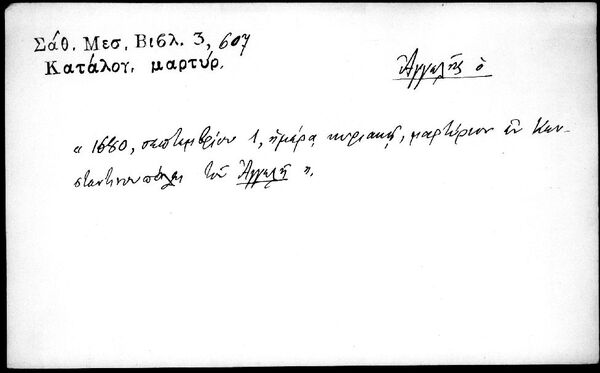 Σάθ. Μεσ. Βιβλ. 3, 607
Κατάλογ. μαρτύρ.
Ἀγγελῆς ὁ
« 1680, σεπτεμβρίου 1, ἡμέρᾳ κυριακῇ, μαρτύριον ἐν Κων-
σταντινουπόλει τοῦ Ἀγγελῆ ».